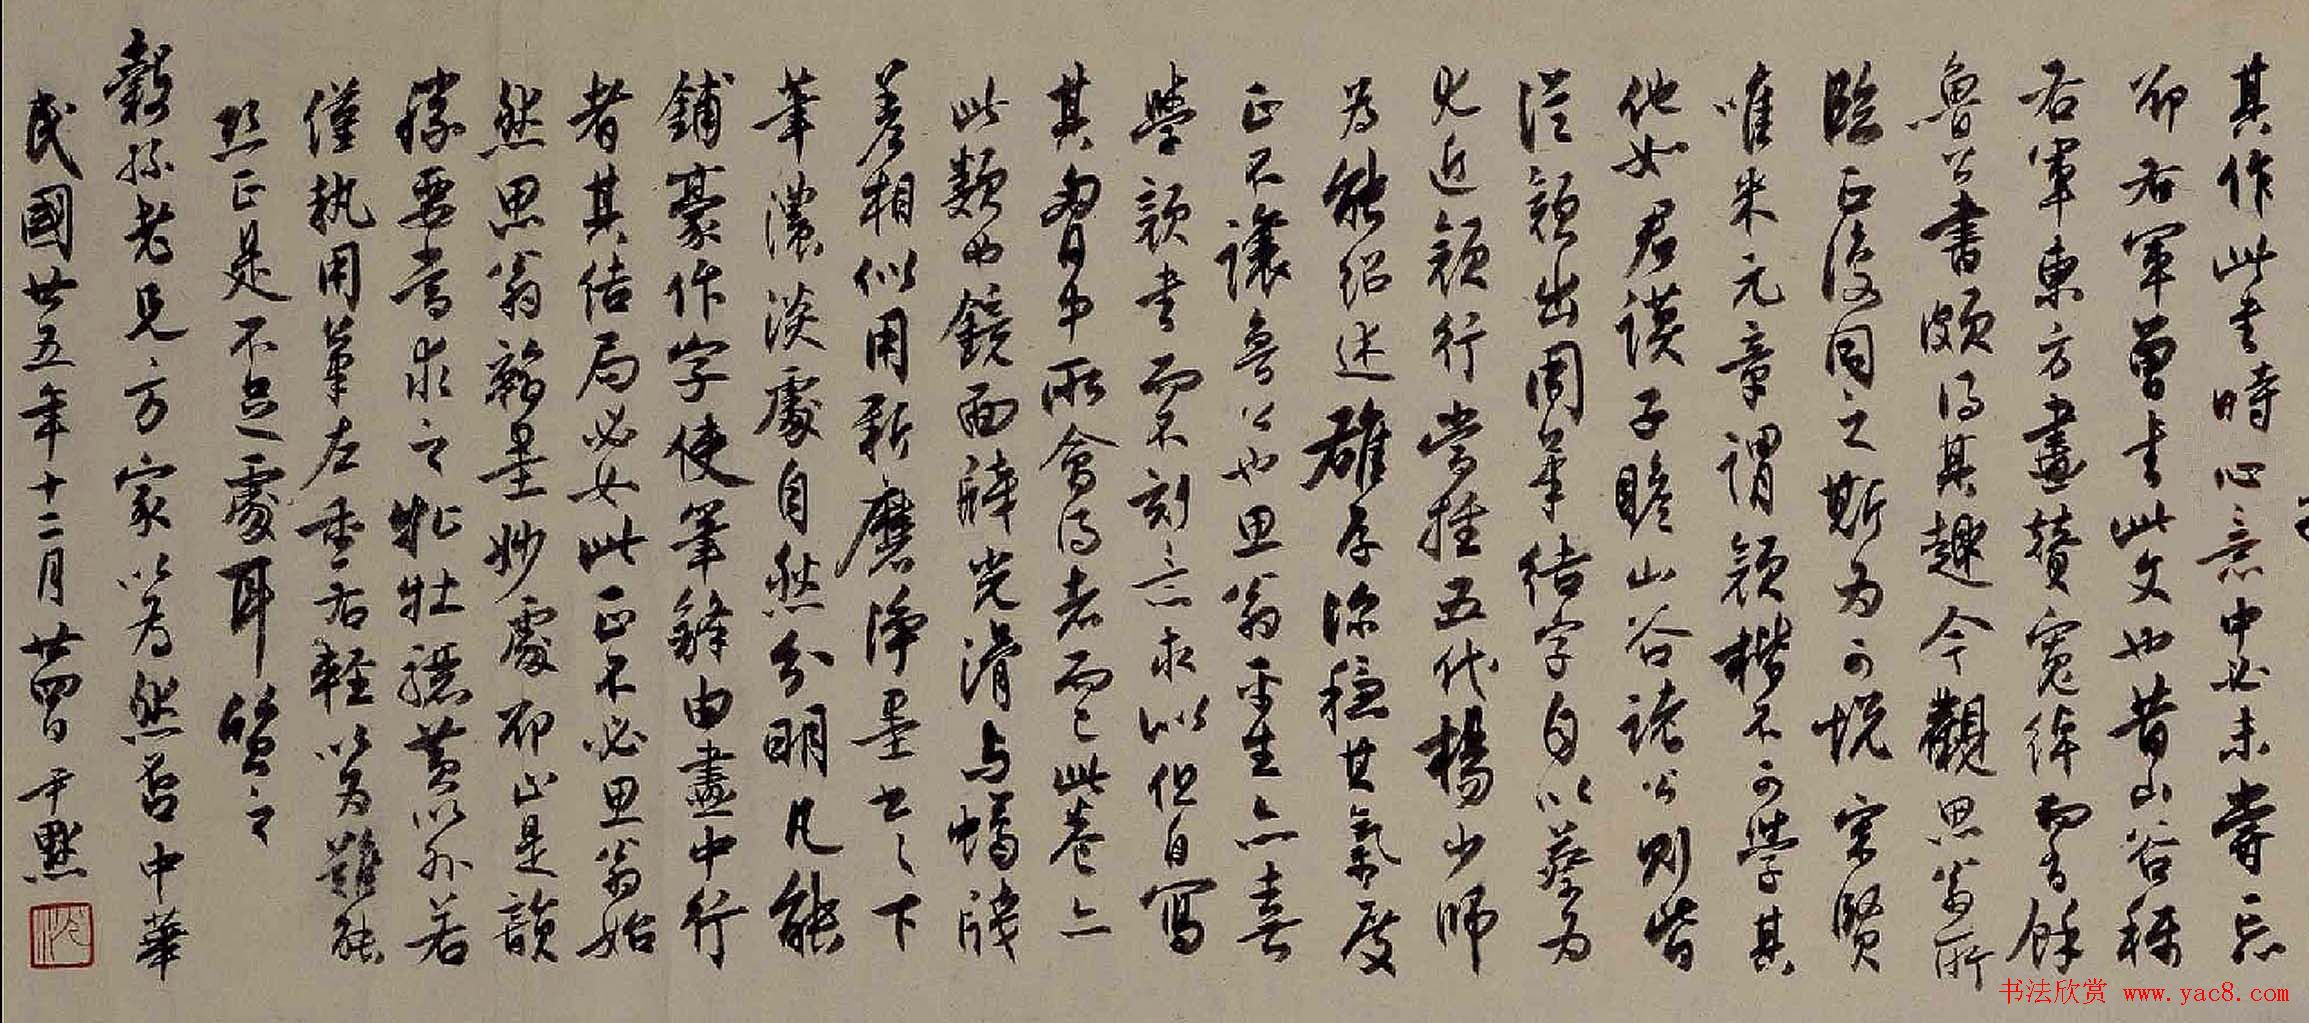 其作此書時心意中必未嘗忘
卻右軍曾書此文也昔山谷稱
右軍東方畫贊寬綽而有餘
魯公書頗得其趣今觀思翁所
臨正復同之斯為可悅宋賢
唯米元章謂顏楷不可學其
他如君謨子瞻山谷諸公則皆
從顏出周筆結字自以蔡為
尤近顏行嘗推五代楊少師
為能紹述雄厚深穩其氣度
正不讓魯公也思翁平生亦喜
學顏書而不刻意求似但自寫
其胸中所會得者而已此卷亦
此類也鏡面牋光滑與蠲牋
差相似用新磨淨墨書之下
筆濃淡處自然分明凡能
鋪豪作字使筆鋒由畫中行
者其結局必如此正不必思翁始
然思翁翰墨妙處却正是韻
勝要當求之牝牡驪黃以外若
僅執用筆左重右輕以為難能
照正是不足處耳質之
穀孫老兄方家以為然否中華
民國廿五年十二月廿四日 尹默
书法欣赏 www.yac8.com